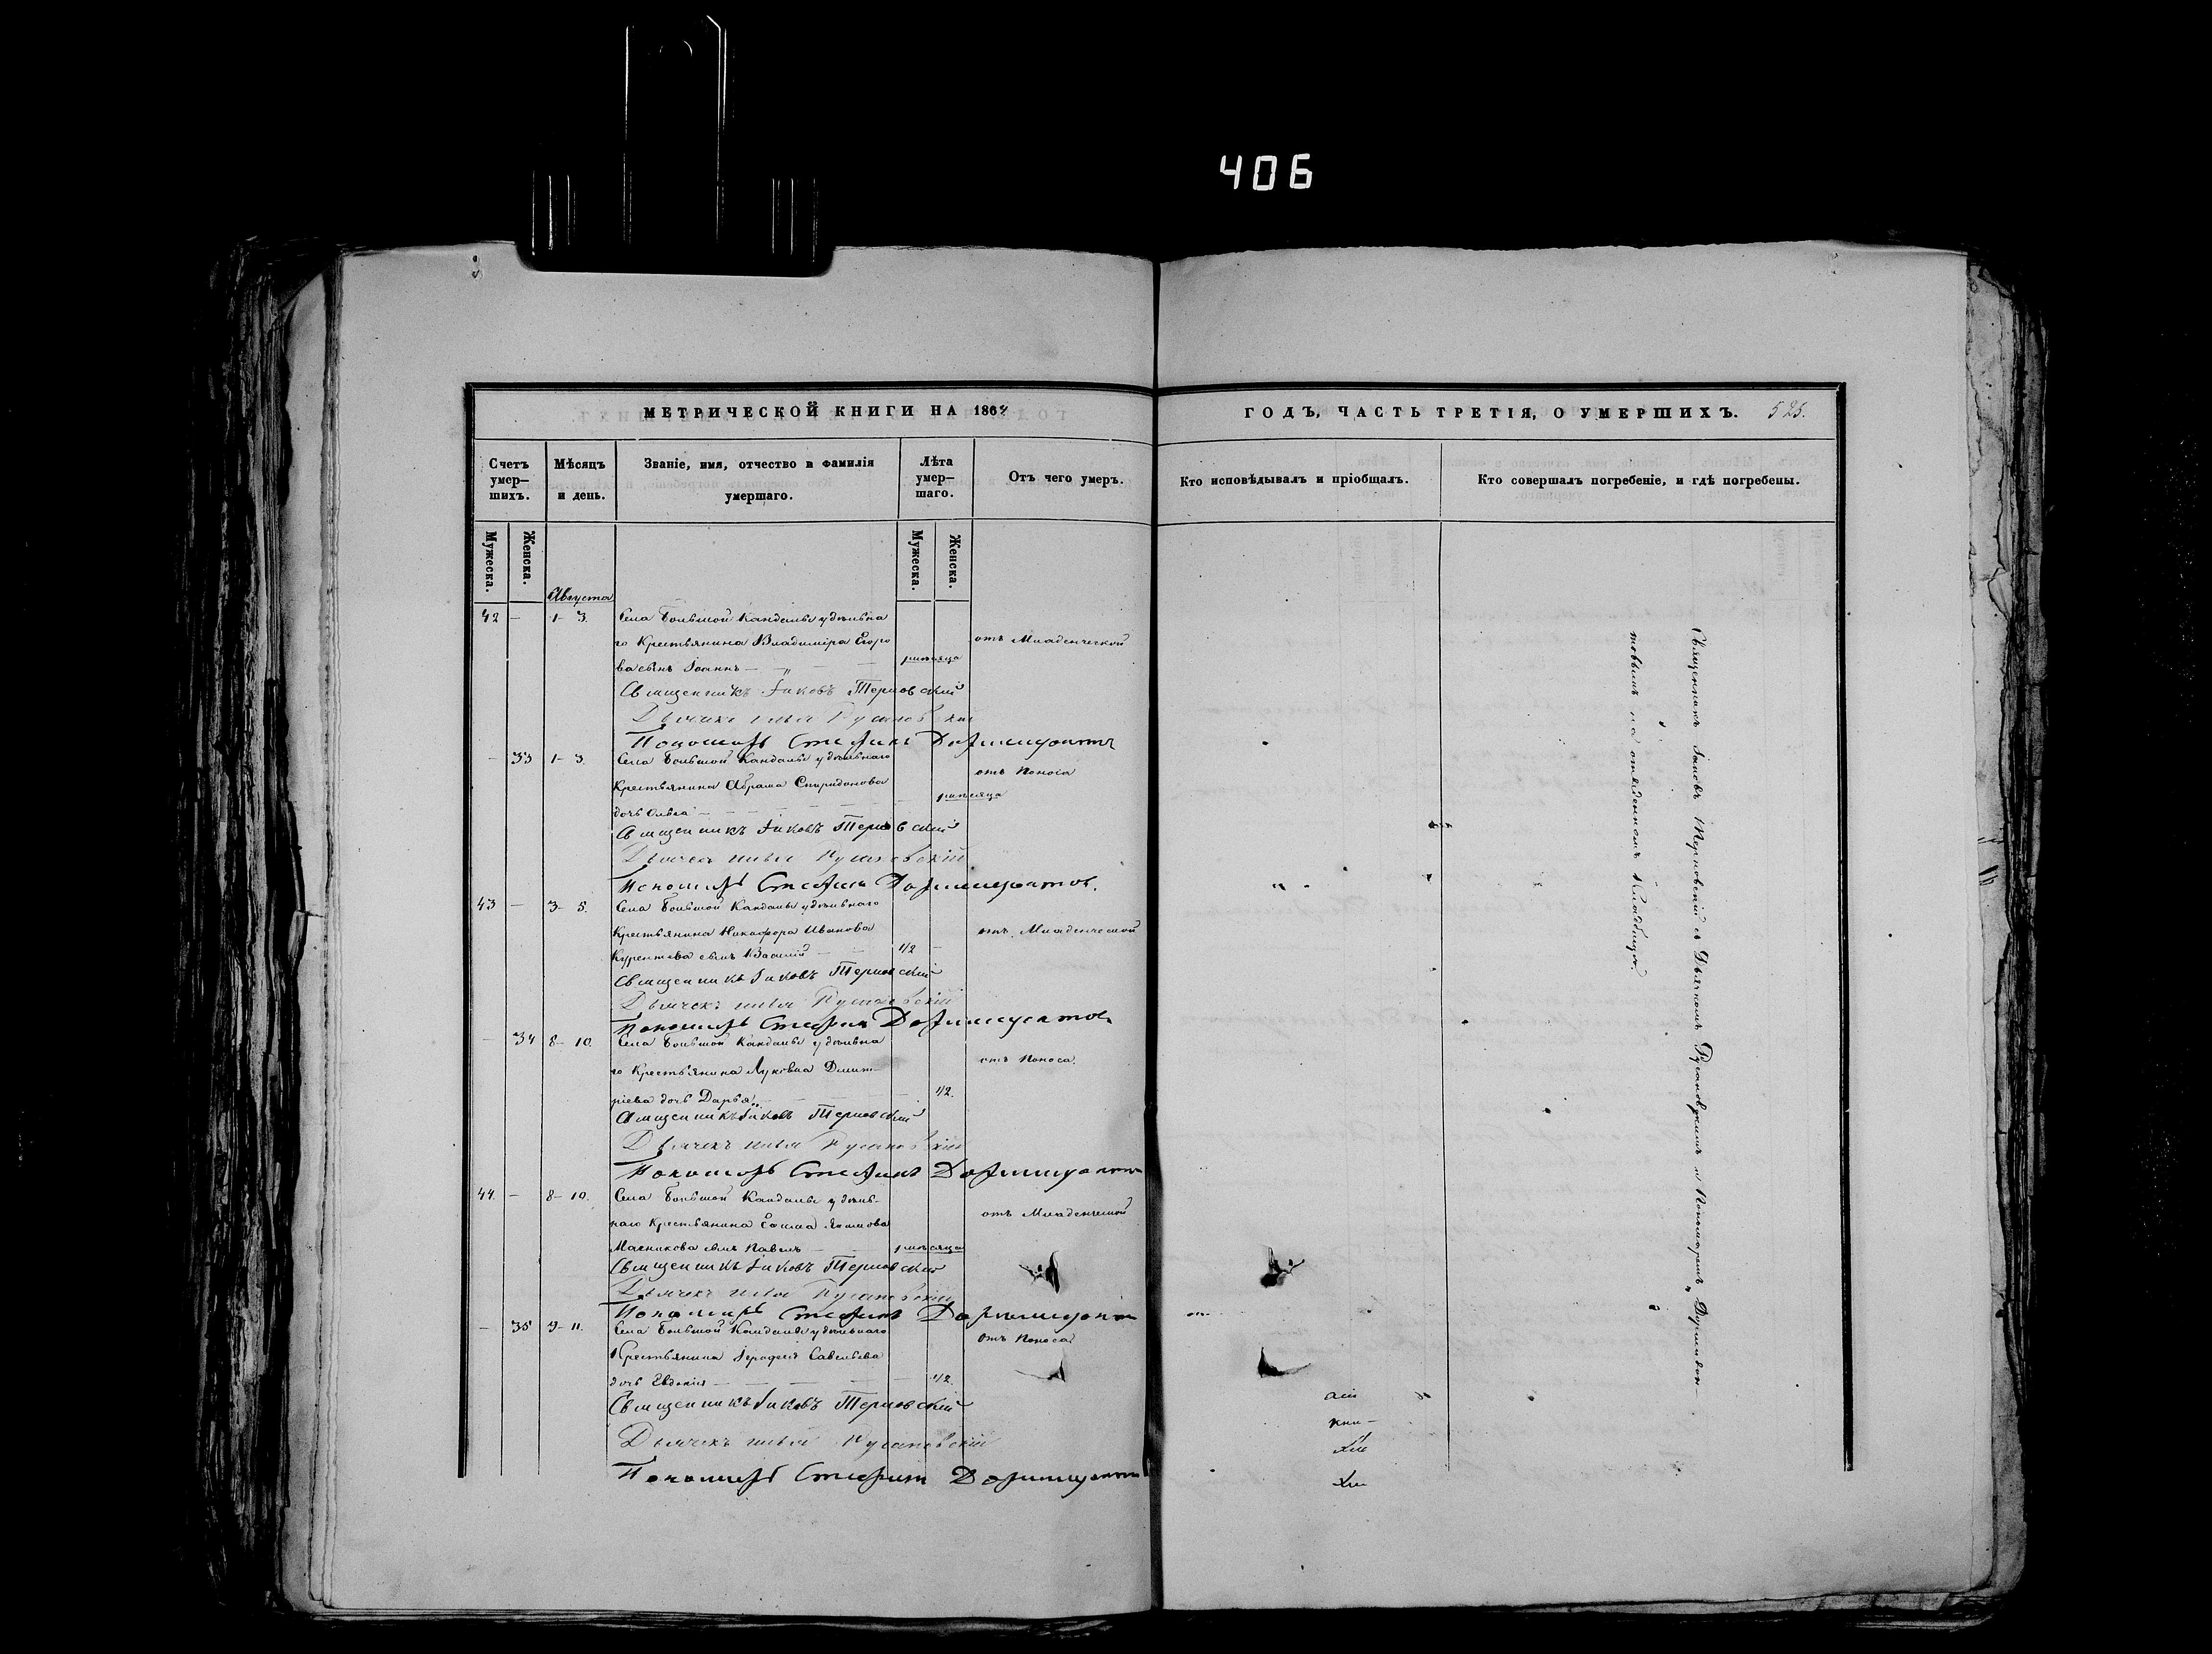 406
МЕТРИЧЕСКОЙ КНИГИ НА 1864
ГОДЪ, ЧАСТЬ ТРЕТІЯ, О УМЕРШИХЪ. 525.
Счетъ умер-шихъ.
Мѣсяцъ и день.
Званіе, имя, отчество и фамилія умершаго.
Лѣта умер-шаго.
Отъ чего умеръ.
Кто исповѣдывалъ и пріобщалъ.
Кто совершалъ погребеніе, и гдѣ погребены.
Мужеска.
Женска.
Мужеска.
Женска.
Августа
42 — 1- 3. Села Большой Кандалы удѣльна
го Крестьянина Владиміра Егоро отъ Младенческой
ва сынъ Іоаннъ — мѣсяца
Священникъ Іаковъ Терновскій
Дьячекъ Илья Русановскій
Пономарь Стефанъ Доримедонтовъ
— 33 1- 3. Села Большой Кандалы удѣльнаго
Крестьянина Абрама Спиридонова отъ Поноса
дочь Ольга — мѣсяца
Священникъ Іаковъ Терновскій
Дьячекъ Илья Русановскій
Пономарь Стефанъ Доримедонтов.
43 — 3- 5. Села Большой Кандалы удѣльнаго
Крестьянина Никифора Иванова отъ Младенческой
сынъ Василій — 1/2 —
Священникъ Іаковъ Терновскій
Дьячекъ Илья Русановскій
Пономарь Стефанъ Доримедонтовъ
— 34 8- 10. Села Большой Кандалы удѣльна
го Крестьянина Луковна Дмит- отъ Поноса.
ріева дочь Дарья — 1/2.
Священникъ Іаковъ Терновскій
Дьячекъ Илья Русановскій
Пономарь Стефанъ Доримедонтовъ
44. — 8- 10. Села Большой Кандалы удѣль-
наго Крестьянина отъ Младенческой
сынъ Павелъ — мѣсяца
Священникъ Іаковъ Терновскій
Дьячекъ Илья Русановскій
Пономарь Стефанъ Доримедонтовъ
— 35 9- 11. Села Большой Кандалы удѣльнаго отъ Поноса
Крестьянина Ерофея Савельева
дочь Евдокія — 1/2.
Священникъ Іаковъ Терновскій
Дьячекъ Илья Русановскій
Пономарь Стефанъ Доримедонтовъ
Священникъ Іаковъ Терновскій съ Дьячкомъ Русановскимъ и Пономаремъ Доримедон-
товымъ на отведенномъ Кладбищѣ.